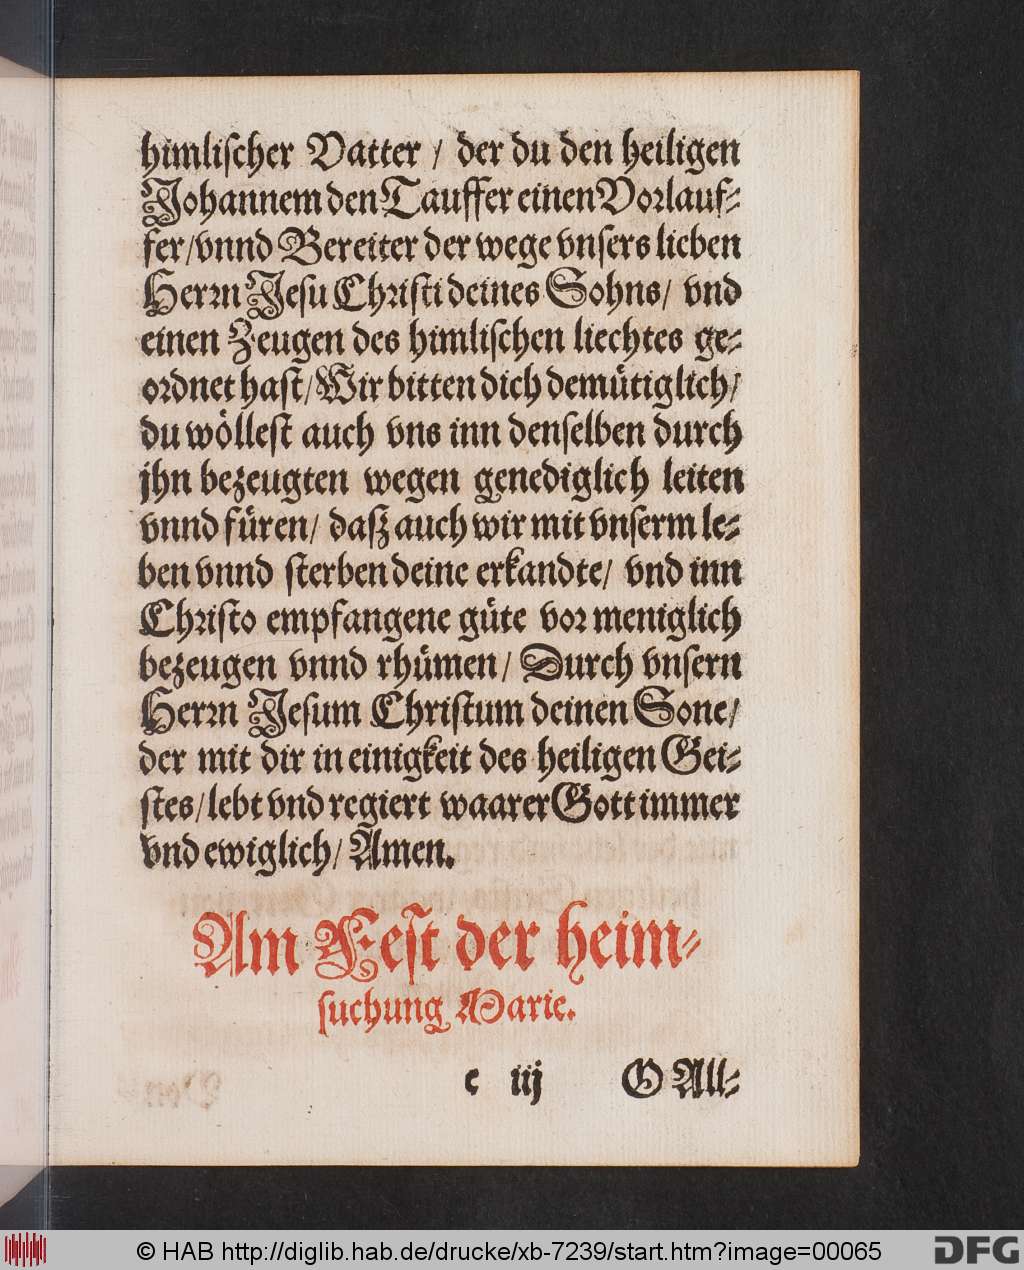 himlischer Vatter / der du den heiligen
Johannem den Tauffer einen Vorlauf-
fer / vnnd Bereiter der wege vnsers lieben
Herrn Jesu Christi deines Sohns / vnd
einen Zeugen des himlischen liechtes ge-
ordnet hast / Wir bitten dich demütiglich /
du wöllest auch vns inn denselben durch
jhn bezeugten wegen genediglich leiten
vnnd füren / dasz auch wir mit vnserm le-
ben vnnd sterben deine erkandte / vnd inn
Christo empfangene güte vor meniglich
bezeugen vnnd rhümen / Durch vnsern
Herrn Jesum Christum deinen Sone /
der mit dir in einigkeit des heiligen Gei-
stes / lebt vnd regiert waarer Gott immer
vnd ewiglich / Amen.
Am Fest der heim-
suchung Marie.
c iij O All-
© HAB http://diglib.hab.de/drucke/xb-7239/start.htm?image=00065
DFG